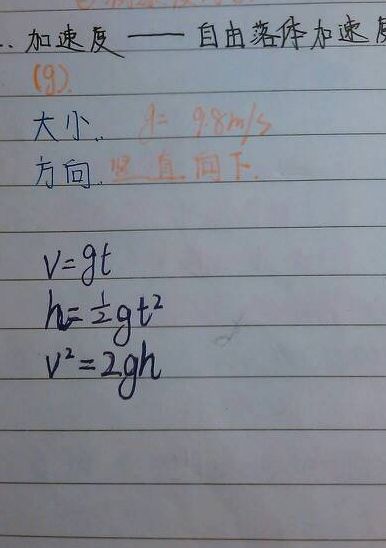 加速度 —— 自由落体加速度
(g).
大小. g = 9.8m/s
方向. 竖直向下.
v=gt
h=½gt²
v²=2gh